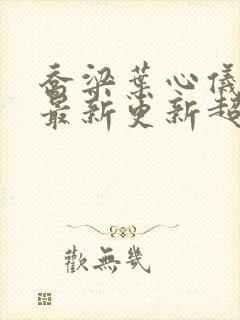 乔梁葉心儀
最新更新超
歡無幾